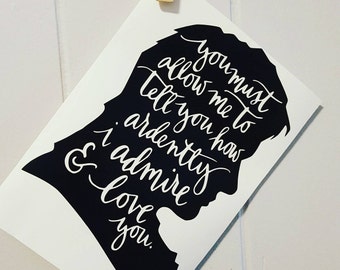 you must
allow me to
tell you how
ardently
i admire
& love
you.